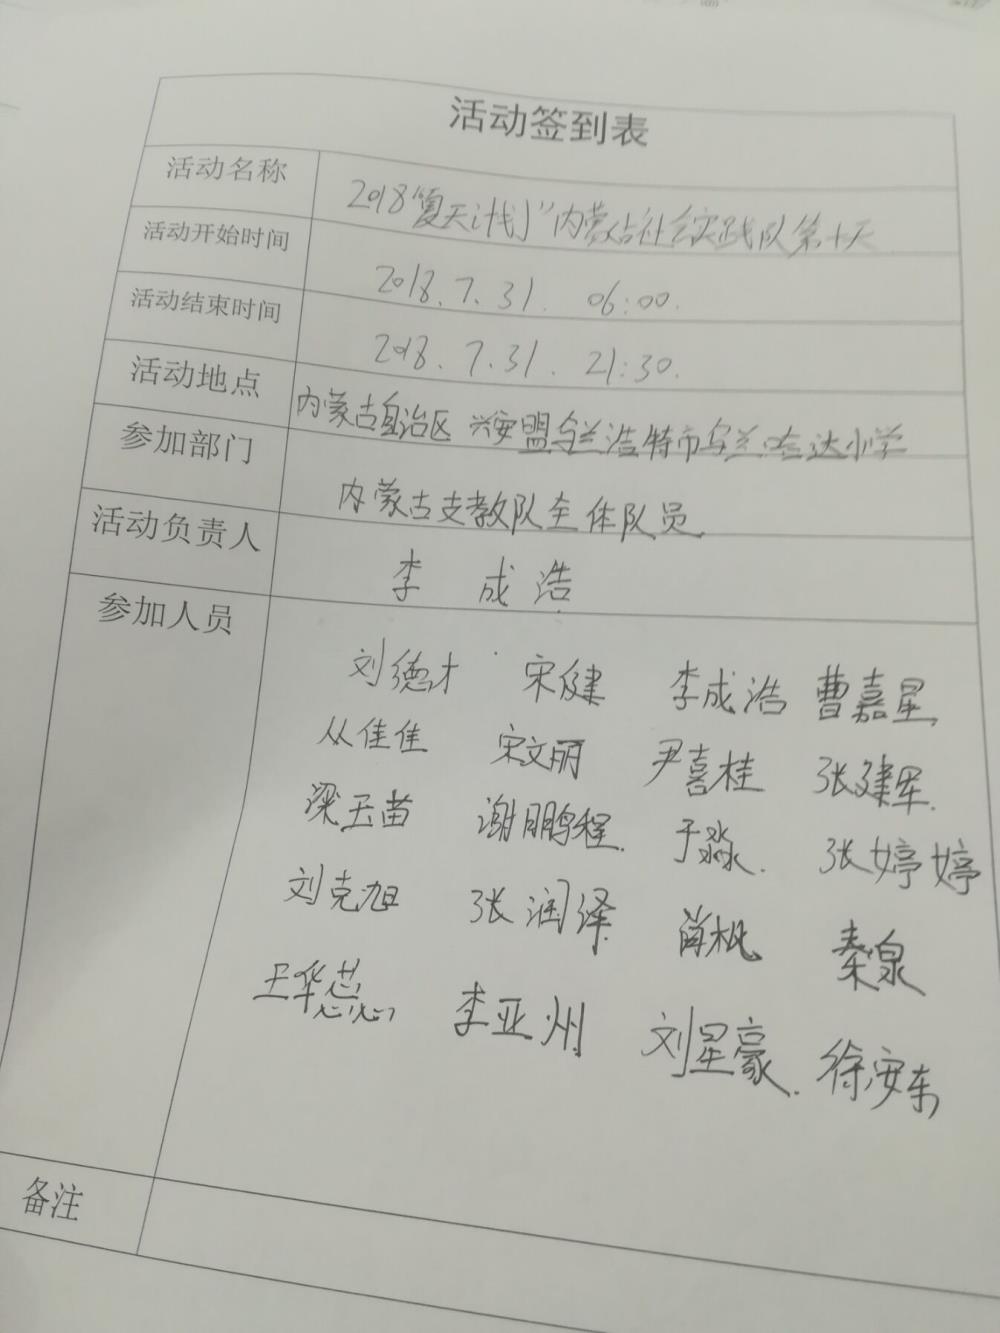 活动签到表
活动名称 2018“夏天计划”内蒙古社会实践队第十天
活动开始时间 2018.7.31. 06:00.
活动结束时间 2018.7.31. 21:30.
活动地点 内蒙古自治区 兴安盟乌兰浩特市乌兰哈达小学
参加部门 内蒙古支教队全体队员
活动负责人 李成浩
参加人员
刘德才 宋健 李成浩 曹嘉星
从佳佳 宋文丽 尹喜桂 张建军.
梁玉苗 谢鹏程. 于淼. 张婷婷
刘克旭 张润泽 肖帆 秦泉
王华 李亚州 刘星豪. 徐安东
备注